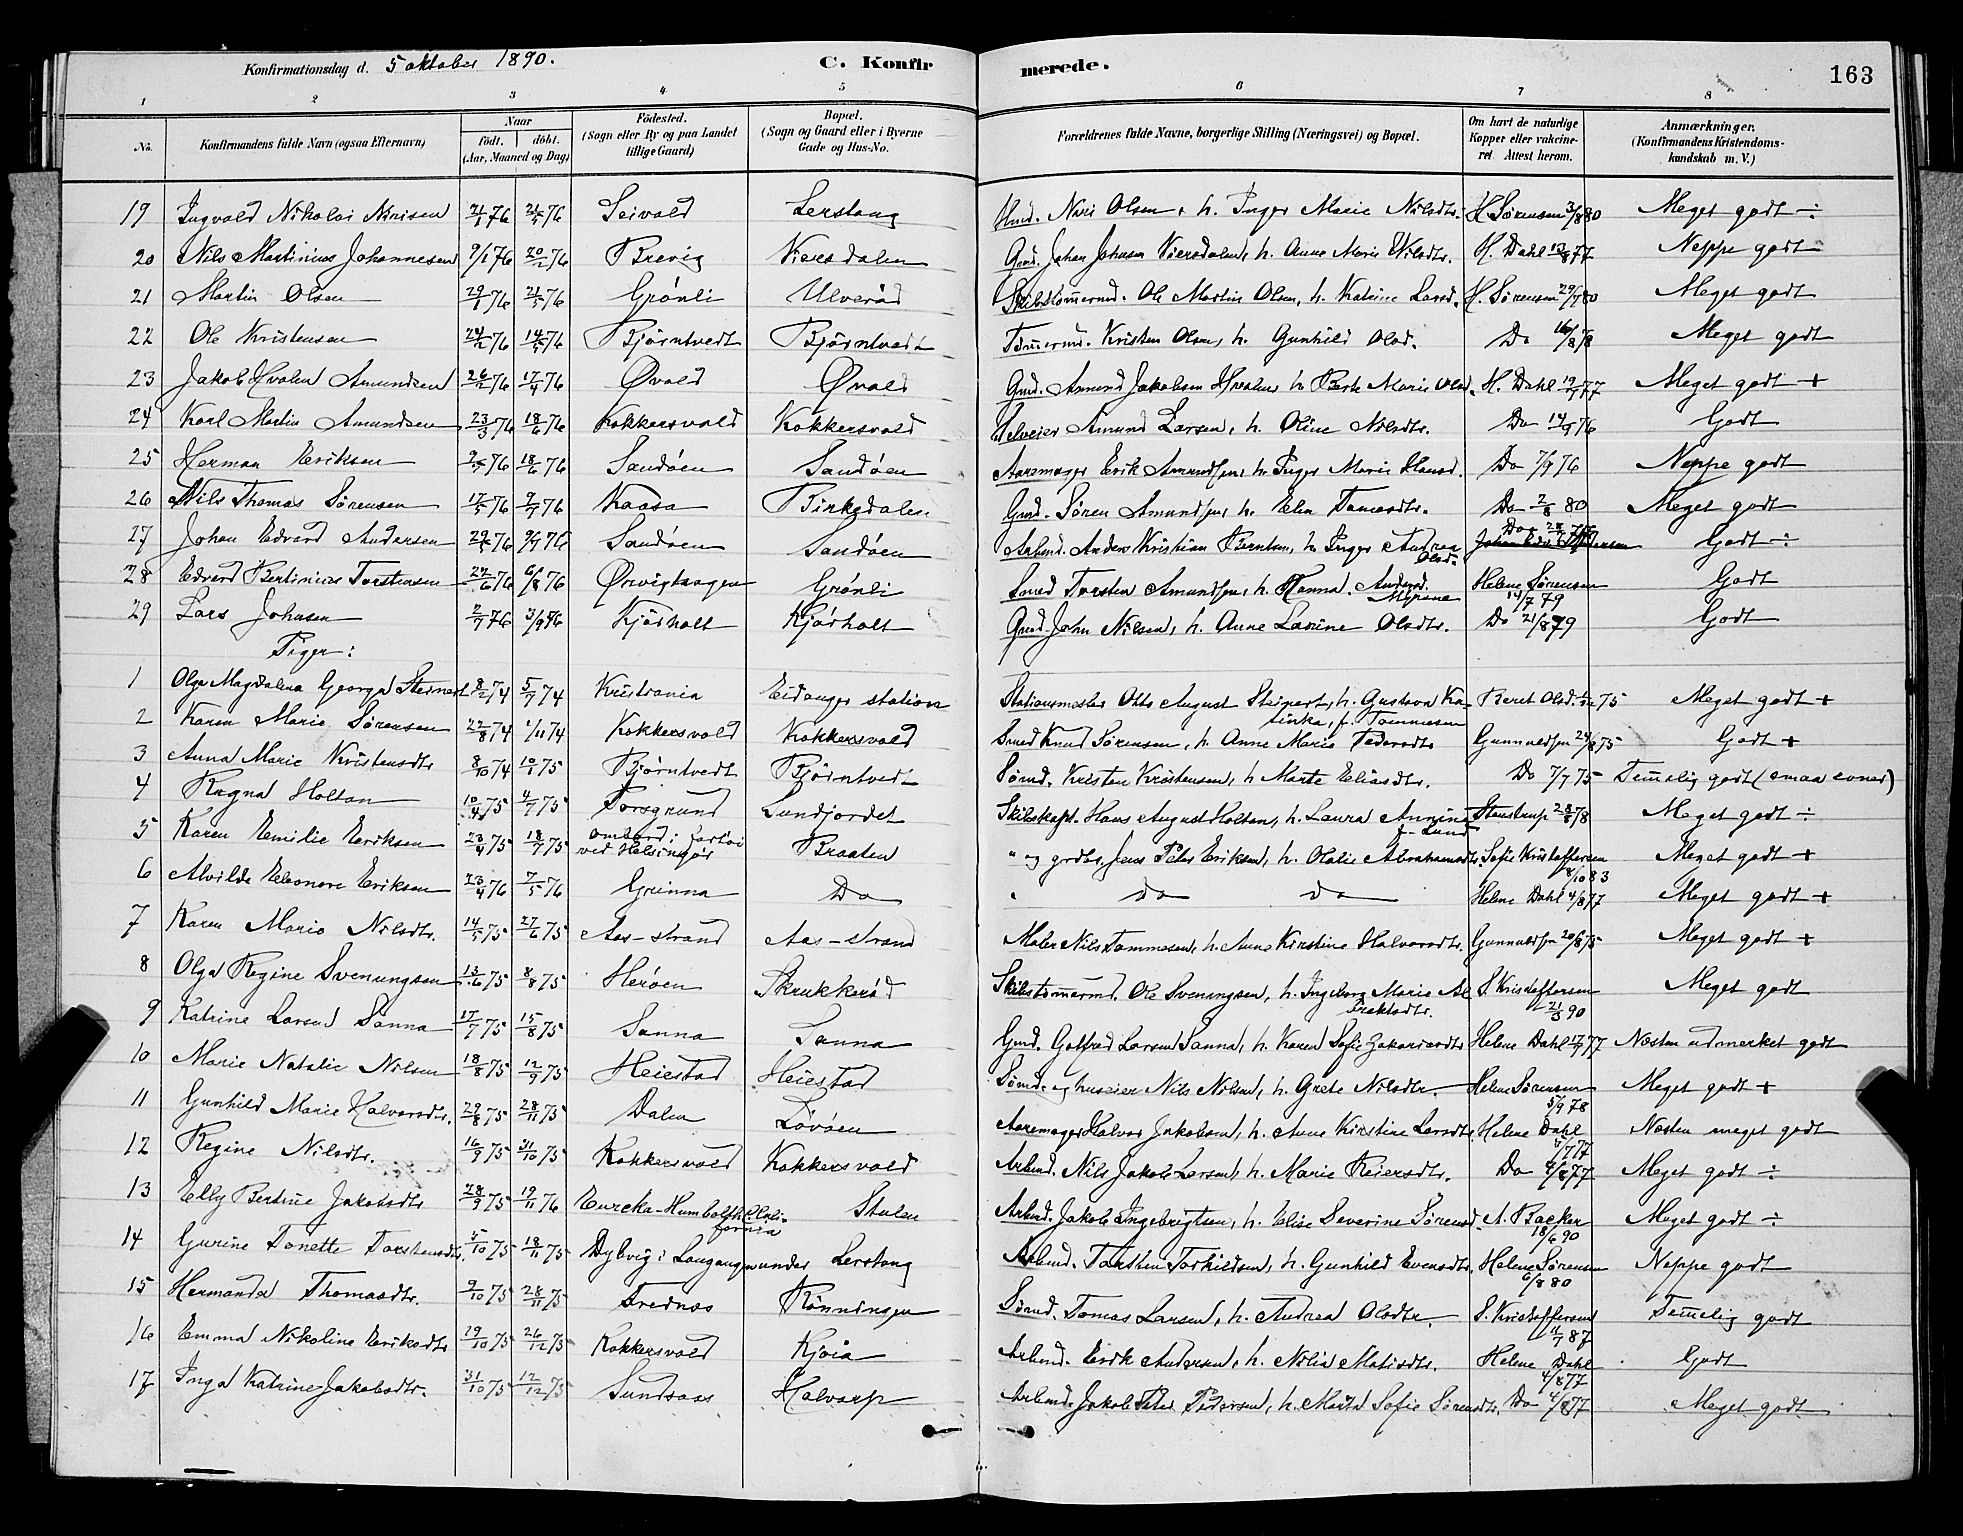 Konfirmationsdag d. 5 oktober 1890. C. Konfirmerede. 163
1 2 3 4 5 6 7 8
No. Konfirmandens fulde Navn (ogsaa Efternavn) Naar født. døbt. (Aar, Maaned og Dag) Fødested. (Sogn eller By og paa Landet tillige Gaard) Bopæl. (Sogn og Gaard eller i Byerne Gade og Hus-No. Forældrenes fulde Navne, borgerlige Stilling (Næringsvei) og Bopæl. Om havt de naturlige Kopper eller vakcineret Attest herom. Anmærkninger. (Konfirmandens Kristendomskundskab m. V.)
19 Ingvald Nikolai Nirisen 21/1 76 21/5 76 Seivald Lerstang Hmd. Niri Olsen, h. Inger Marie Nilsdtr. H. Sørensen 3/8 80 Meget godt ÷
20 Nils Martinius Johannesen 9/1 76 20/2 76 Brevig Viersdalen Gmd. Johan Johnsen Viersdalen, h. Anne Marie Nilsdtr. H. Dahl 12/8 77 Neppe godt
21 Martin Olsen 29/1 76 21/5 76 Grönli Ulveröd Skibstömermd. Ole Martin Olsen, h. Katrine Larsd. H. Sørensen 29/7 80 Meget godt
22 Ole Kristensen 24/2 76 14/5 76 Bjørntvedt Bjørntvedt Tömermd. Kristen Olsen, h. Gunhild Olsd. Do 16/8 78 Meget godt
23 Jakob Hvalen Amundsen 26/2 76 17/4 76 Øvald Øvald Gmd. Amund Jakobsen Hvalen, h. Berte Marie Olsd. H. Dahl 19/7 77 Meget godt +
24 Karl Martin Amundsen 23/3 76 18/6 76 Kokkersvold Kokkersvold Selveier Amund Larsen, h. Oline Nilsdtr. Do 14/9 76 Godt
25 Herman Eriksen 2/5 76 18/6 76 Sandöen Sandöen Aaremager Erik Amundsen, h. Inger Marie Hansd. Do 7/9 76 Neppe godt
26 Nils Thomas Sørensen 17/5 76 9/7 76 Kaasa Birkedalen Gmd. Søren Amundsen, h. Elen Tomesdtr. Do 2/8 80 Meget godt
27 Johan Edvard Andersen 29/5 76 9/7 76 Sandöen Sandöen Arbmd. Anders Kristian Berntsen, h. Inger Andrea Olsd. Godt ÷
28 Edvard Bertinius Torstensen 22/6 76 6/8 76 Ørvigtangen Grönli Smed Torsten Amundsen, h. Hanna Andersd. Helene Sørensen 14/7 79 Godt
29 Lars Johnsen 2/7 76 3/9 76 Kjörholt Kjörholt Gmd. John Nilsen, h. Anne Larine Olsdtr. Do 21/8 79 Godt
Piger:
1 Olga Magdalena Georga Steinert 8/2 74 5/7 74 Kristiania Eidanger station Stationsmester Otto August Steinert, h. Gustava Katinka, f. Tommesen Beret Olsd. 75 Meget godt +
2 Karen Marie Sørensen 22/8 74 1/11 74 Kokkersvold Kokkersvold Smed Knud Sørensen, h. Anne Marie Pedersdtr Gunnulfsen 24/8 75 Godt +
3 Anna Marie Kristensdtr 8/10 74 10/1 75 Bjørntvedt Bjørntvedt Sömd. Kristen Kristensen, h. Marte Eliasdtr. Do 7/7 75 Temelig godt (smaa evner)
4 Ragna Holtan 10/4 75 4/7 75 Porsgrund Sundjordet Skibskapt. Hans August Holtan, h. Laura Annine f. Lund Stenstrup 28/8 78 Meget godt ÷
5 Karen Emilie Eriksen 23/4 75 18/7 75 ombord i fartöi ved Helsingör Braaten " og grdbr. Jens Peter Eriksen, h. Olalie Abrahamsdtr. Sofie Kristoffersen 8/10 83 Meget godt +
6 Alvilde Eleonore Eriksen 23/4 76 7/5 76 Grinna Do " Do Do Helene Dahl 4/8 77 Meget godt +
7 Karen Marie Nilsdtr. 14/5 75 27/6 75 Aas-strand Aas-strand Maler Nils Tommesen, h. Anne Kirstine Halvorsdtr. Gunnulfsen 20/8 75 Meget godt +
8 Olga Regine Svenungsen 13/6 75 8/8 75 Heröen Skrukkeröd Skibstömermd. Ole Svenungsen, h. Ingeborg Marie S. Kristoffersen 21/3 90 Meget godt
9 Katrine Larsen Sanna 17/7 75 15/8 75 Sanna Sanna Gmd. Gotfred Larsen Sanna, h. Karen Sofie Zakariasdtr Helene Dahl 17/7 77 Næsten udmerket godt
10 Marie Natalie Nilsen 18/8 75 12/9 75 Heiestad Heiestad Sömd. og huseier Nils Nilsen, h. Grete Nilsdtr. Helene Sørensen 5/9 78 Meget godt +
11 Gunhild Marie Halvorsdtr. 29/8 75 28/11 75 Dalen Lövöen Aaremager Halvor Jakobsen, h. Anne Kirstine Larsdtr Helene Dahl 5/7 77 Næsten meget godt
12 Regine Nilsdtr. 16/9 75 31/10 75 Kokkersvold Kokkersvold Arbmd. Nils Jakob Larsen, h. Marie Reiersdtr. Do 4/8 77 Meget godt ÷
13 Elly Bertine Jakobsdtr 28/9 75 19/11 76 Eureka-Humboldth California Stulen Arbmd. Jakob Ingebrigtsen, h. Elise Severine Sørensd. A. Backer 18/6 90 Meget godt ÷
14 Gurine Tonette Torstensdtr. 5/10 75 18/11 75 Dybvig i Langangen under Lerstang Arbmd. Torsten Torkildsen, h. Gunhild Evensdtr. Helene Sørensen 6/8 80 Neppe godt
15 Hermanda Thomasdtr. 9/10 75 28/11 75 Trednes Rönningen Sömd. Tomas Larsen, h. Andrea Olsdtr. S. Kristoffersen 11/7 87 Temelig godt
16 Emma Nikoline Eriksdtr 19/10 75 26/12 75 Kokkersvold Kjøia Arbmd. Erik Andersen, h. Nilia Matisdtr. Helene Dahl 4/8 77 Godt
17 Inga Katrine Jakobsdtr. 31/10 75 12/12 75 Sundsaas Halvarp Arbmd. Jakob Peter Pedersen, h. Marta Sofie Sørensdtr. Do 4/8 77 Meget godt